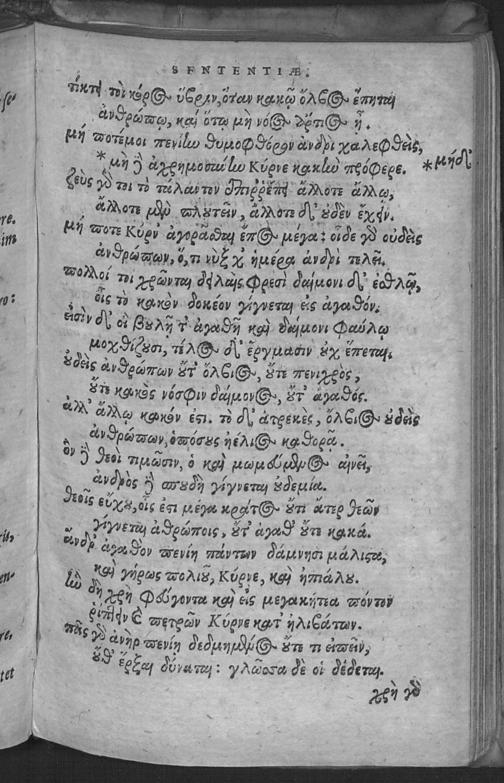 SENTENTIÆ.
τίκτει τοι κόρος ὕβριν, ὅταν κακῷ ὄλβος ἕπηται
ἀνθρώπῳ, καὶ ὅτῳ μὴ νόος ἄρτιος ᾖ.
μή ποτέ μοι πενίην θυμοφθόρον ἀνδρὶ χαλεφθεὶς,
*μὴ δ ἀχρημοσύνην Κύρνε κακὴν πρόφερε. *μήδ'
ζεὺς γάρ τοι τὸ τάλαντον ἐπιρρέπει ἄλλοτε ἄλλῳ,
ἄλλοτε μὲν πλουτεῖν, ἄλλοτε δ' οὐδὲν ἔχειν.
μή ποτε Κύρν' ἀγορᾶσθαι ἔπος μέγα: οἶδε γὰρ οὐδεὶς
ἀνθρώπων, ὅ, τι νὺξ χ ἡμέρα ἀνδρὶ τελεῖ.
πολλοί τοι χρῶνται δειλαῖς φρεσὶ δαίμονι δ' ἐσθλῷ,
οἷς τὸ κακὸν δοκέον γίγνεται εἰς ἀγαθόν.
εἰσὶν δ' οἳ βουλῇ τ' ἀγαθῇ καὶ δαίμονι φαύλῳ
μοχθίζουσι, τέλος δ' ἔργμασιν οὐχ ἕπεται.
οὐδεὶς ἀνθρώπων οὔτ' ὄλβιος, οὔτε πενιχρὸς,
οὔτε κακὸς νόσφιν δαίμονος, οὔτ' ἀγαθός.
ἄλλ' ἄλλῳ κακόν ἐστι. τὸ δ' ἀτρεκὲς, ὄλβιος οὐδεὶς
ἀνθρώπων, ὁπόσους ἠέλιος καθορᾷ.
ὃν δὲ θεοὶ τιμῶσιν, ὁ καὶ μωμεύμενος αἰνεῖ,
ἀνδρὸς δὲ σπουδὴ γίγνεται οὐδεμία.
θεοῖς εὔχου, οἷς ἐστι μέγα κράτος οὔτι ἄτερ θεῶν
γίγνεται ἀθρώποις, οὔτ' ἀγαθ' οὔτε κακά.
ἄνδρ' ἀγαθὸν πενίη πάντων δάμνησι μάλιστα,
καὶ γήρως πολιοῦ, Κύρνε, καὶ ἠπιάλου.
ἣν δὴ χρὴ φεύγοντα καὶ εἰς μεγακήτεα πόντον
ῥιπτεῖν καὶ πετρῶν Κύρνε κατ' ἠλιβάτων.
πᾶς γὰρ ἀνὴρ πενίῃ δεδμημένος οὔτε τι εἰπεῖν,
οὔθ' ἔρξαι δύναται: γλῶσσα δέ οἱ δέδεται.
χρὴ γὰρ